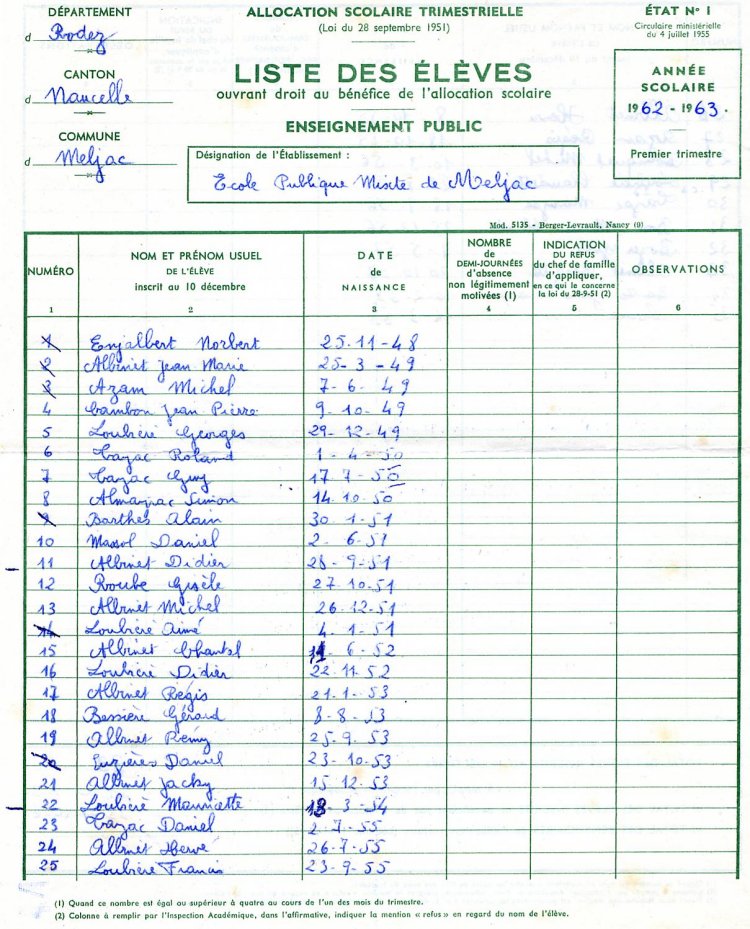 DÉPARTEMENT
d Rodez
CANTON
d Naucelle
COMMUNE
d Meljac
ALLOCATION SCOLAIRE TRIMESTRIELLE
(Loi du 28 septembre 1951)
LISTE DES ÉLÈVES
ouvrant droit au bénéfice de l'allocation scolaire
ENSEIGNEMENT PUBLIC
Désignation de l'Établissement :
Ecole Publique Mixte de Meljac
ÉTAT N° I
Circulaire ministérielle
du 4 juillet 1955
ANNÉE
SCOLAIRE
1962 - 1963.
Premier trimestre
Mod. 5135 - Berger-Levrault, Nancy (9)
NUMÉRO
1
NOM ET PRÉNOM USUEL
DE L'ÉLÈVE
inscrit au 10 décembre
2
DATE
de
NAISSANCE
3
NOMBRE
de
DEMI-JOURNÉES
d'absence
non légitimement
motivées (1)
4
INDICATION
DU REFUS
du chef de famille
d'appliquer,
en ce qui le concerne
la loi du 28-9-51 (2)
5
OBSERVATIONS
6
1 Enjalbert Norbert 25-11-48
2 Albinet Jean Marie 25-3-49
3 Azam Michel 7-6-49
4 Cambon Jean Pierre 9-10-49
5 Loubière Georges 29-12-49
6 Cazac Roland 1-4-50
7 Cazac Guy 17-7-50
8 Almayrac Simon 14-10-50
9 Barthes Alain 30-1-51
10 Massol Daniel 2-6-51
11 Albinet Didier 28-9-51
12 Roube Gisèle 27-10-51
13 Albinet Michel 26-12-51
14 Loubière Aimé 4-1-51
15 Albinet Chantal 11-6-52
16 Loubière Didier 22-11-52
17 Albinet Régis 21-1-53
18 Bessière Gérard 8-8-53
19 Albinet Rémy 25-9-53
20 Euzières Daniel 23-10-53
21 Albinet Jacky 15-12-53
22 Loubière Mauricette 13-3-54
23 Cazac Daniel 2-7-55
24 Albinet Hervé 26-7-55
25 Loubière Francis 23-9-55
(1) Quand ce nombre est égal ou supérieur à quatre au cours de l'un des mois du trimestre.
(2) Colonne à remplir par l'Inspection Académique, dans l'affirmative, indiquer la mention « refus » en regard du nom de l'élève.